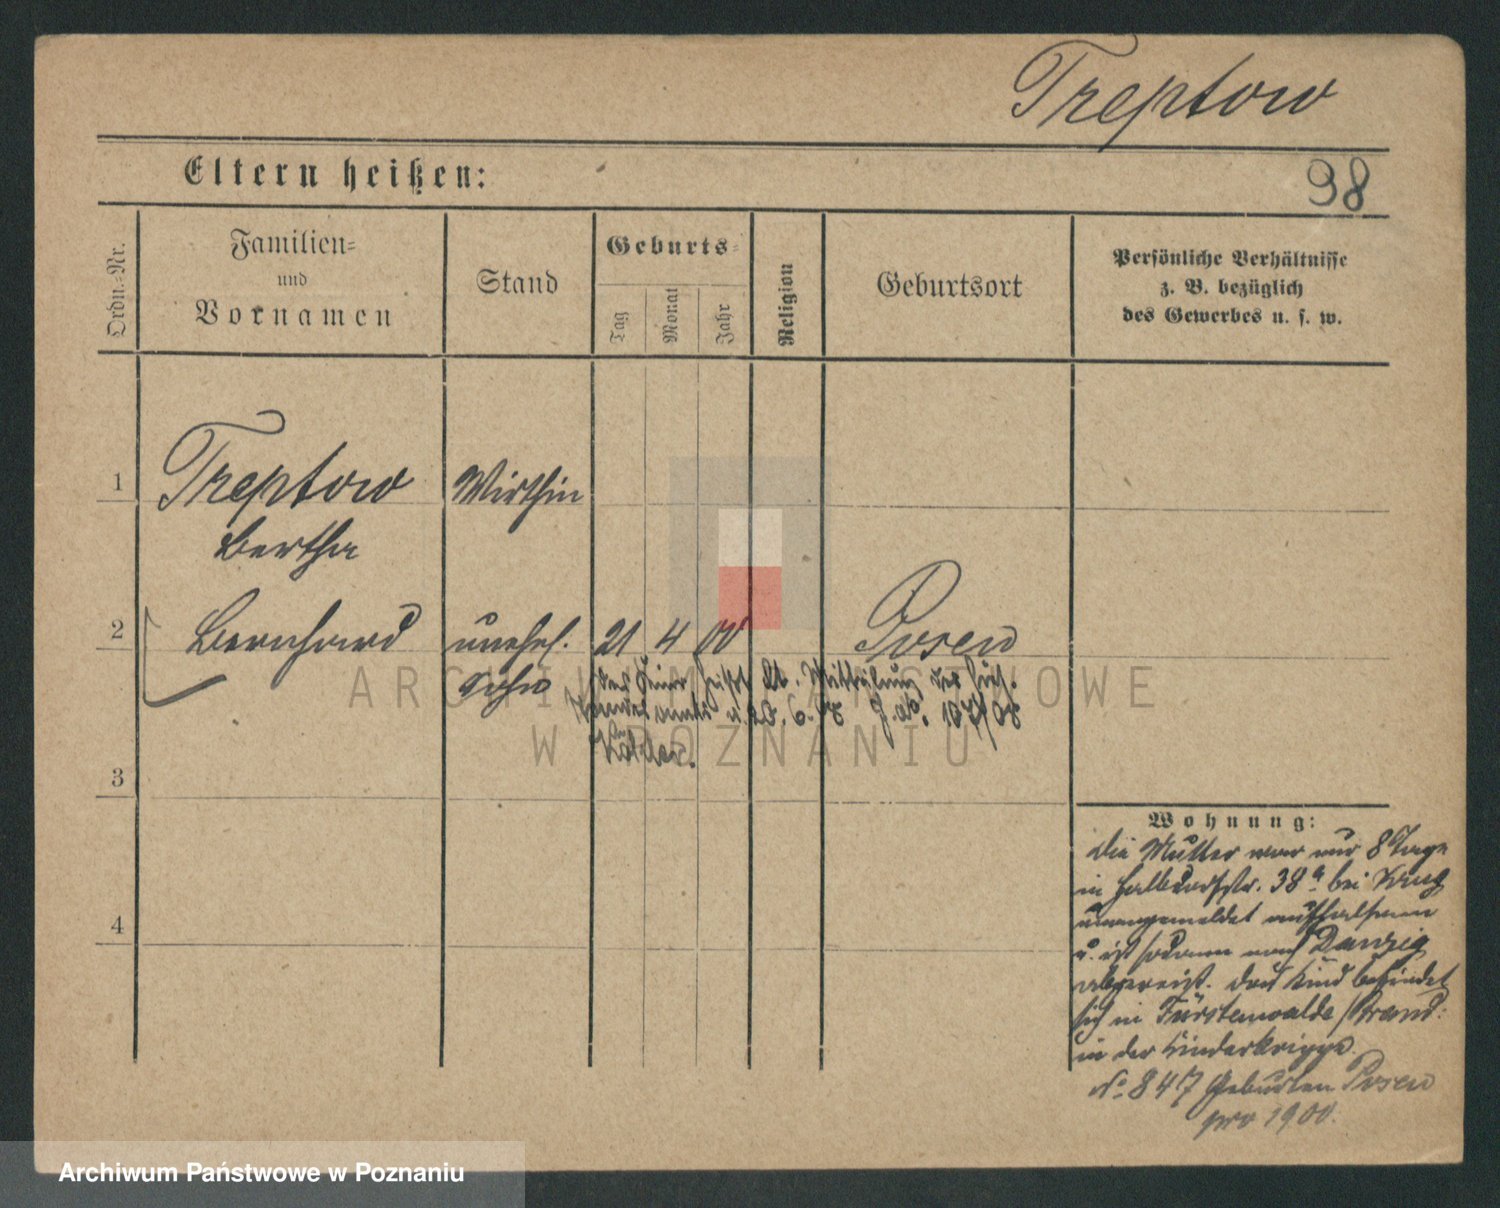 Treptow
Eltern heißen:
98
Ordn.-Nr.
Familien-
und
Vornamen
Stand
Geburts-
Tag
Monat
Jahr
Religion
Geburtsort
Persönliche Verhältnisse
z. B. bezüglich
des Gewerbes u. s. w.
1
Treptow
Wirthin
Bertha
2
Bernhard
unehel.
21
4
00
Posen
Sohn
heißt lt. Mittheilung des
Standesamts v. 20. 6.
3
Wohnung:
Die Mutter war nur 8 Tage
in Halbdorfstr. 38a bei Krug
unangemeldet aufhaltsam
u. ist sodann nach Danzig
abgereist. Das Kind befindet
sich in Fürstenwalde /Brand:
in der Kinderkrippe.
4
No 847 Geburten Posen
pro 1900.
ARCHIWUM PAŃSTWOWE
W POZNANIU
Archiwum Państwowe w Poznaniu